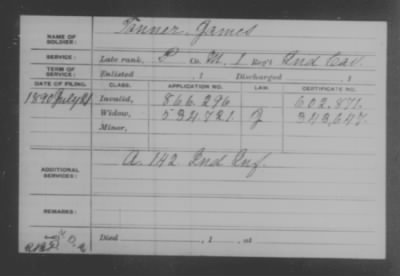 NAME OF SOLDIER: Tanner, James
SERVICE: Late rank, P Co. M, 1 Reg't Ind Cav.
TERM OF SERVICE: Enlisted , 1 Discharged , 1
DATE OF FILING. CLASS. APPLICATION NO. LAW. CERTIFICATE NO.
1890 July 21 Invalid, 866.296 602.871.
Widow, 534.721 J 343,647.
Minor,
ADDITIONAL SERVICES: A. 142 Ind Inf.
REMARKS:
Died , 1 , at